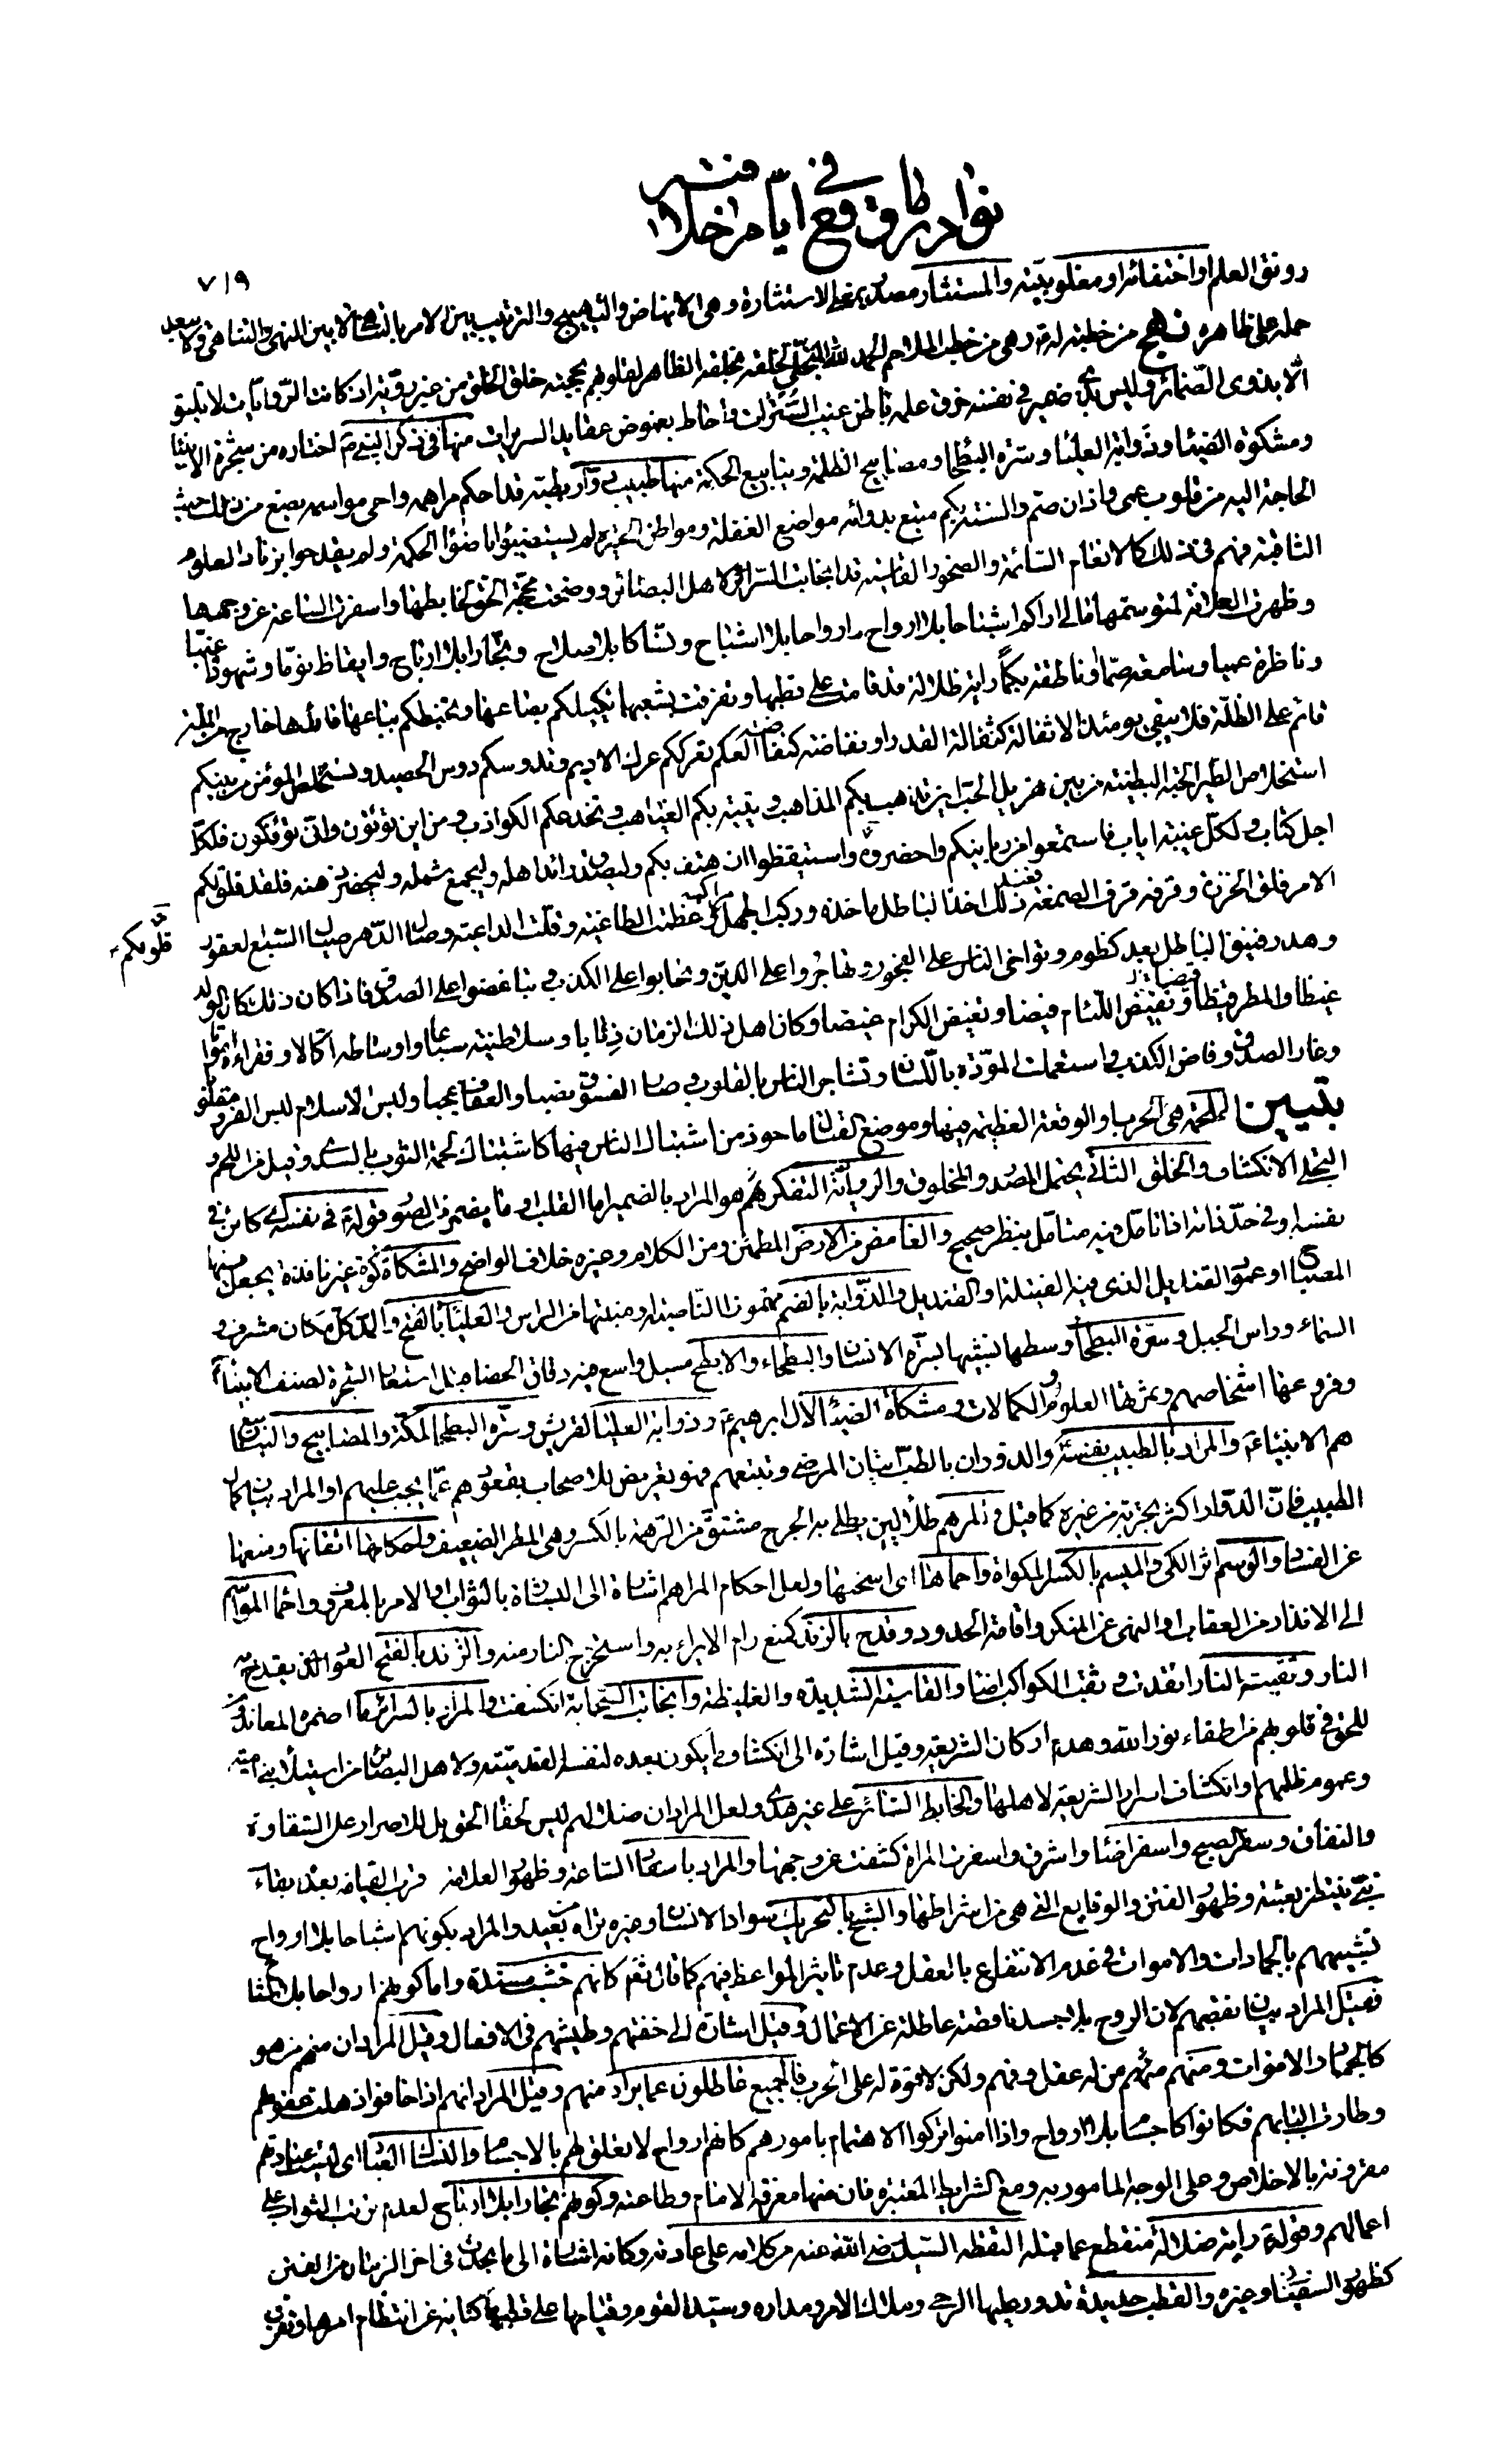 نوادر ما وقع في أيام خلافته
٧١٩
رونق العلم او اختفائه او مغلوبيته والمستثار مصدر بمعنى الاستثارة وهي الانهاض والتهييج والترتيب بين الامر بالتناهي لا بين النهي والتناهي ولا يبعد
حمله على ظاهره نهج من خطبة له وهي من خطب الملاحم الحمد لله المتجلي لخلقه بخلقه الظاهر لقلوبهم بحجته خلق الخلق من غير روية اذ كانت الرويات لا تليق
الا بذوي الضمائر وليس بذي ضمير في نفسه خرق علمه باطن غيب السترات واحاط بغموض عقايد السريرات منها في ذكر النبي ص اختاره من شجرة الانبياء
ومشكوة الضياء وذوابة العلياء وسرة البطحاء ومصابيح الظلمة وينابيع الحكمة منها طبيب دوار بطبه قد احكم مراهمه واحمى مواسمه يضع من ذلك حيث
الحاجة اليه من قلوب عمي واذان صم والسنة بكم متبع بدوائه مواضع الغفلة ومواطن الحيرة لم يستضيئوا باضواء الحكمة ولم يقدحوا بزناد العلوم
الثاقبة فهم في ذلك كالانعام السائمة والصخور القاسية قد انجابت السرائر لاهل البصائر ووضحت محجة الحق لخابطها واسفرت الساعة عن وجهها
وظهرت العلامة لمتوسمها ما لي اراكم اشباحا بلا ارواح وارواحا بلا اشباح ونساكا بلا صلاح وتجارا بلا ارباح وايقاظا نوما وشهودا غيبا
وناظرة عمياء وسامعة صماء وناطقة بكماء راية ضلالة قد قامت على قطبها وتفرقت بشعبها تكيلكم بصاعها وتخبطكم بباعها قائدها خارج من الملة
قائم على الضلة فلا يبقى يومئذ منكم الا ثفالة كثفالة القدر او نفاضة كنفاضة العكم تعرككم عرك الاديم وتدوسكم دوس الحصيد وتستخلص المؤمن من بينكم
استخلاص الطير الحبة البطينة من بين هزيل الحب اين تذهب بكم المذاهب وتتيه بكم الغياهب وتخدعكم الكواذب ومن اين تؤتون وانى تؤفكون فلكل
اجل كتاب ولكل غيبة اياب فاستمعوا من ربانيكم واحضروه قلوبكم واستيقظوا ان هتف بكم وليصدق رائد اهله وليجمع شمله وليحضر ذهنه فلقد فلق لكم
الامر فلق الخرزة وقرفه قرف الصمغة فعند ذلك اخذ الباطل مآخذه وركب الجهل مراكبه وعظمت الطاغية وقلت الداعية وصال الدهر صيال السبع العقور
وهدر فنيق الباطل بعد كظوم وتواخى الناس على الفجور وتهاجروا على الدين وتحابوا على الكذب وتباغضوا على الصدق فاذا كان ذلك كان الولد
غيظا والمطر قيظا وتفيض اللئام فيضا وتغيض الكرام غيضا وكان اهل ذلك الزمان ذئابا وسلاطينه سباعا واوساطه اكالا وفقراءه امواتا
وغار الصدق وفاض الكذب واستعملت المودة باللسان وتشاجر الناس بالقلوب وصار الفسوق نسبا والعفاف عجبا ولبس الاسلام لبس الفرو مقلوبا
تبيين الملحمة هي الحرب او الوقعة العظيمة فيها وموضع القتال ماخوذ من اشتباك الناس فيها كاشتباك لحمة الثوب بالسدى وقيل من اللحم
التجلي الانكشاف والخلق الثاني يحتمل المصدر والمخلوق والروية التفكر هو المراد بالضمير اما القلب او ما يضمر من الصور قوله في نفسه اي كائن في
نفسه او في حد ذاته اذا تامل فيه متامل بنظر صحيح والغامض من الارض المطمئن ومن الكلام وغيره خلاف الواضح والمشكاة كوة غير نافذة يجعل فيها
المصباح او عمود القنديل الذي فيه الفتيلة او القنديل والذوابة بالضم مهموزا الناصية او منبتها من الراس والعلياء بالفتح والمد كل مكان مشرف و
السماء وراس الجبل وسرة البطحاء وسطها تشبيها بسرة الانسان والبطحاء والابطح مسيل واسع فيه دقاق الحصا قيل استعار الشجرة لصنف الانبياء
وفروعها اشخاصهم وثمرتها العلوم والكمالات ومشكاة الضياء لآل ابرهيم ع وذوابة العلياء لقريش وسرة البطحاء لمكة والمصابيح والينابيع
هم الانبياء ع والمراد بالطبيب نفسه والدوران بالطب اتيان المرضى وتتبعهم فهو تعريض للاصحاب بقعودهم عما يجب عليهم او المراد بيان كمال
الطبيب فان الدوار اكثر تجربة من غيره كما قيل والمرهم طلاء لين يطلى به الجرح مشتق من الرهمة بالكسر وهي المطر الضعيف واحكامها اتقانها ومنعها
عن الفساد والوسم اثر الكي والميسم بالكسر المكواة واحماها اي اسخنها ولعل احكام المراهم اشارة الى البشارة بالثواب او الامر بالمعروف واحماء المواسم
الى الانذار من العقاب او النهي عن المنكر واقامة الحدود وقدح بالزند كمنع رام الايراء به واستخرج النار منه والزند بالفتح العود الذي يقدح به
النار وثقبت النار اتقدت وثقب الكواكب اضاء والقاسية الشديدة والغليظة وانجابت السحابة انكشفت والمراد بالسرائر ما اضمره المعاندون
للحق في قلوبهم من اطفاء نور الله وهدم اركان الشريعة وقيل اشارة الى انكشاف ما يكون بعده لنفسه القدسية ولاهل البصائر من استيلاء بني امية
وعموم ظلمهم وانكشاف اسرار الشريعة لاهلها والخابط السائر على غير هدى ولعل المراد ان ضلالهم ليس لخفاء الحق بل للاصرار على الشقاوة
والنفاق وسفر الصبح واسفر اضاء واشرق واسفرت المراة كشفت عن وجهها والمراد باسفار الساعة وظهور العلامة قرب القيامة بعدم بقاء
نبي ينتظر بعثته وظهور الفتن والوقايع التي هي من اشراطها والشبح بالتحريك سواد الانسان وغيره تراه من بعيد والمراد بكونهم اشباحا بلا ارواح
تشبيههم بالجمادات والاموات في عدم الانتفاع بالعقل وعدم تاثير المواعظ فيهم كما قال تع كانهم خشب مسندة واما كونهم ارواحا بلا اشباح
فقيل المراد بيان نقصهم لان الروح بلا جسد ناقصة عاطلة عن الاعمال وقيل اشارة الى خفتهم وطيشهم في الافعال وقيل المراد ان منهم من هو
كالجماد والاموات ومنهم من له عقل وفهم ولكن لا قوة له على الحرب فالجميع عاطلون عما يراد منهم وقيل المراد انهم اذا خافوا ذهلت عقولهم
وطارت البابهم فكانوا كاجسام بلا ارواح واذا امنوا تركوا الاهتمام بامورهم كانهم ارواح لا تعلق لهم بالاجسام والنساك العباد اي ليست عبادتهم
مقرونة بالاخلاص وعلى الوجه المامور به ومع الشرايط المعتبرة فان منها معرفة الامام وطاعته وكونهم تجارا بلا ارباح لعدم ترتب الثواب على
اعمالهم وقوله راية ضلالة منقطع عما قبله التقطه السيد رضي الله عنه من كلامه على عادته وكانه اشارة الى ما يحدث في اخر الزمان من الفتن
كظهور السفياني وغيره والقطب حديدة تدور عليها الرحى وملاك الامر ومداره وسيد القوم وقيامها على قطبها كناية عن انتظام امرها وتفرق